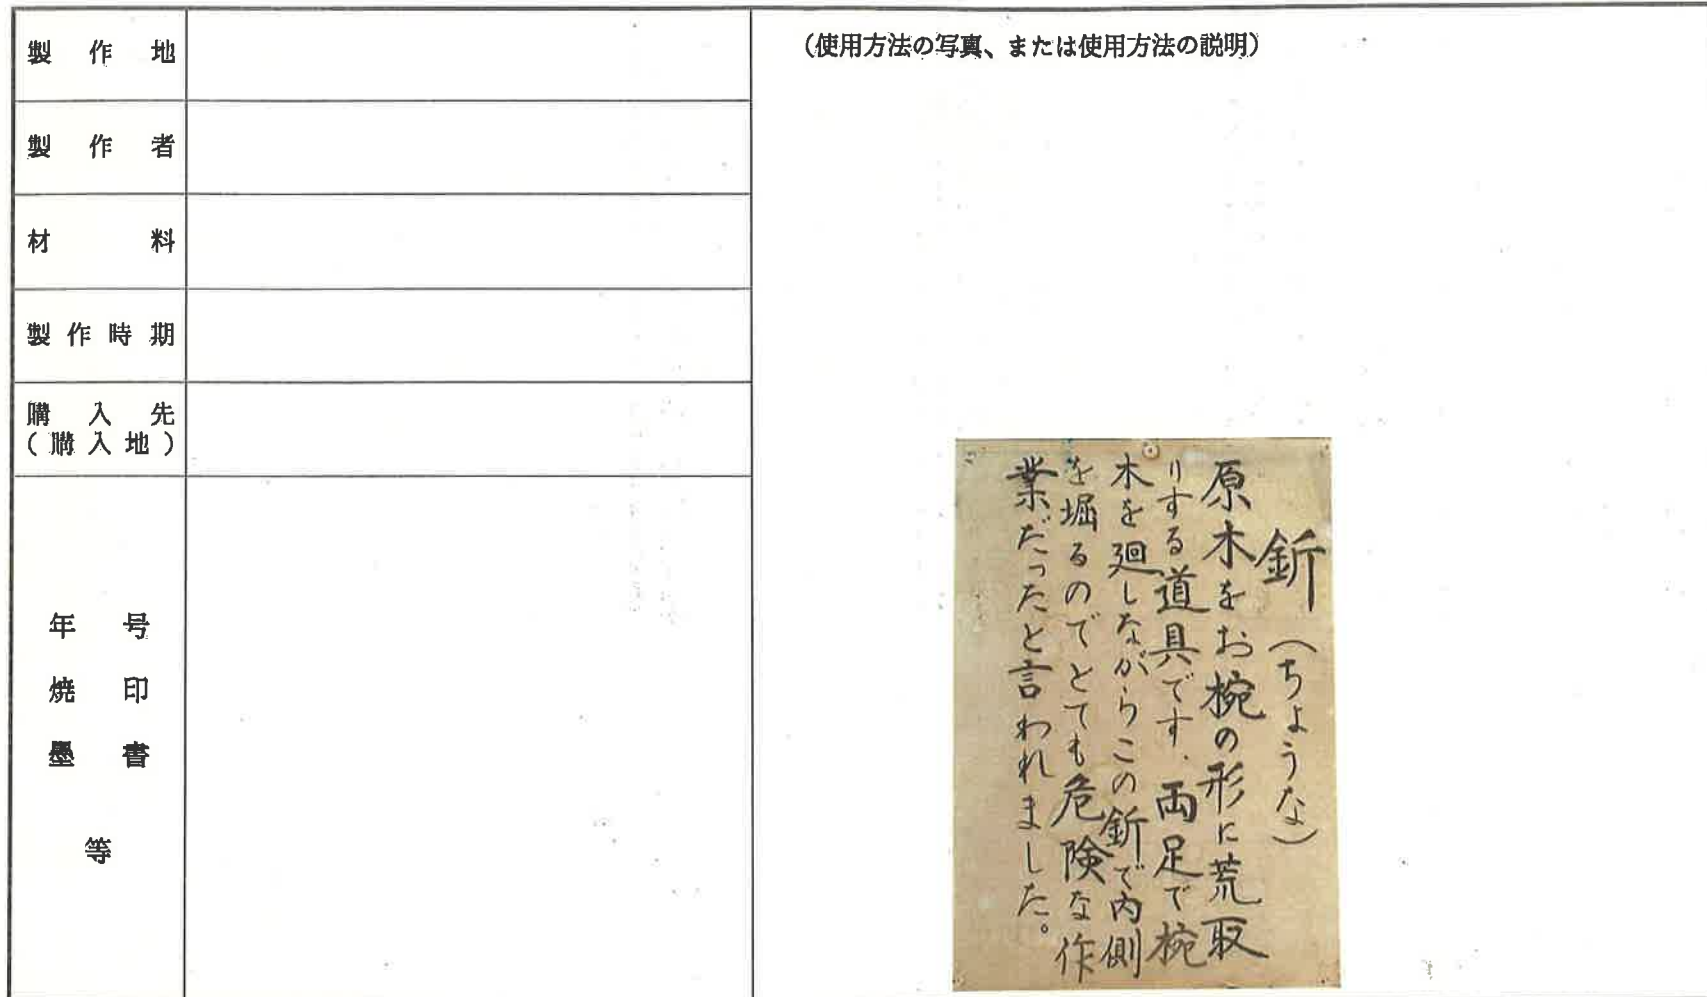 製作地
製作者
材料
製作時期
購入先
(購入地)
年号
焼印
墨書
等
(使用方法の写真、または使用方法の説明)
釿(ちょうな)
原木をお椀の形に荒取
りする道具です.両足で椀
木を廻しながらこの釿で内側
を堀るのでとても危険な作
業だったと言われました。